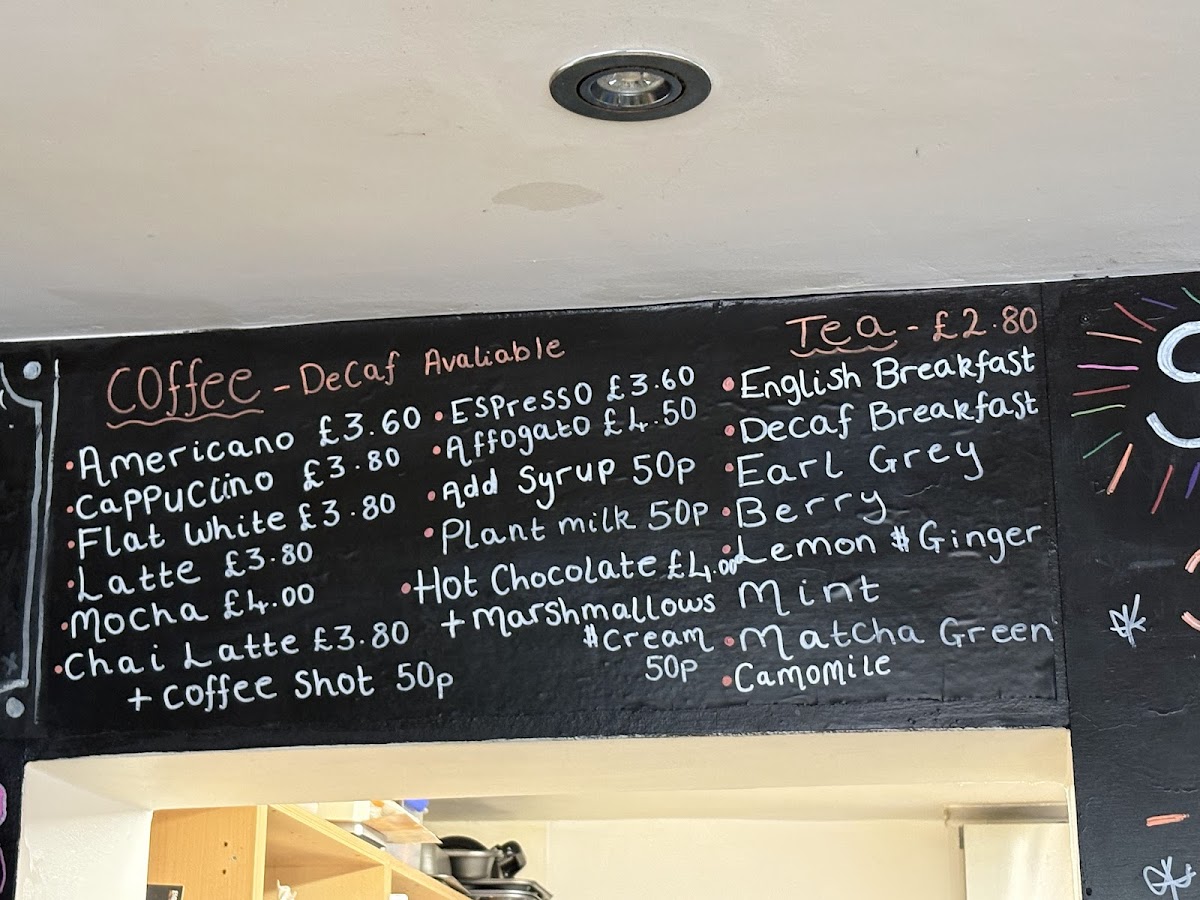 Coffee - Decaf Avaliable
Americano £3.60
Cappuccino £3.80
Flat White £3.80
Latte £3.80
Mocha £4.00
Chai Latte £3.80
+ Coffee Shot 50p
Espresso £3.60
Affogato £4.50
Add Syrup 50p
Plant milk 50p
Hot Chocolate £4.00
+ Marshmallows
& Cream
50p
Tea - £2.80
English Breakfast
Decaf Breakfast
Earl Grey
Berry
Lemon & Ginger
Mint
Matcha Green
Camomile